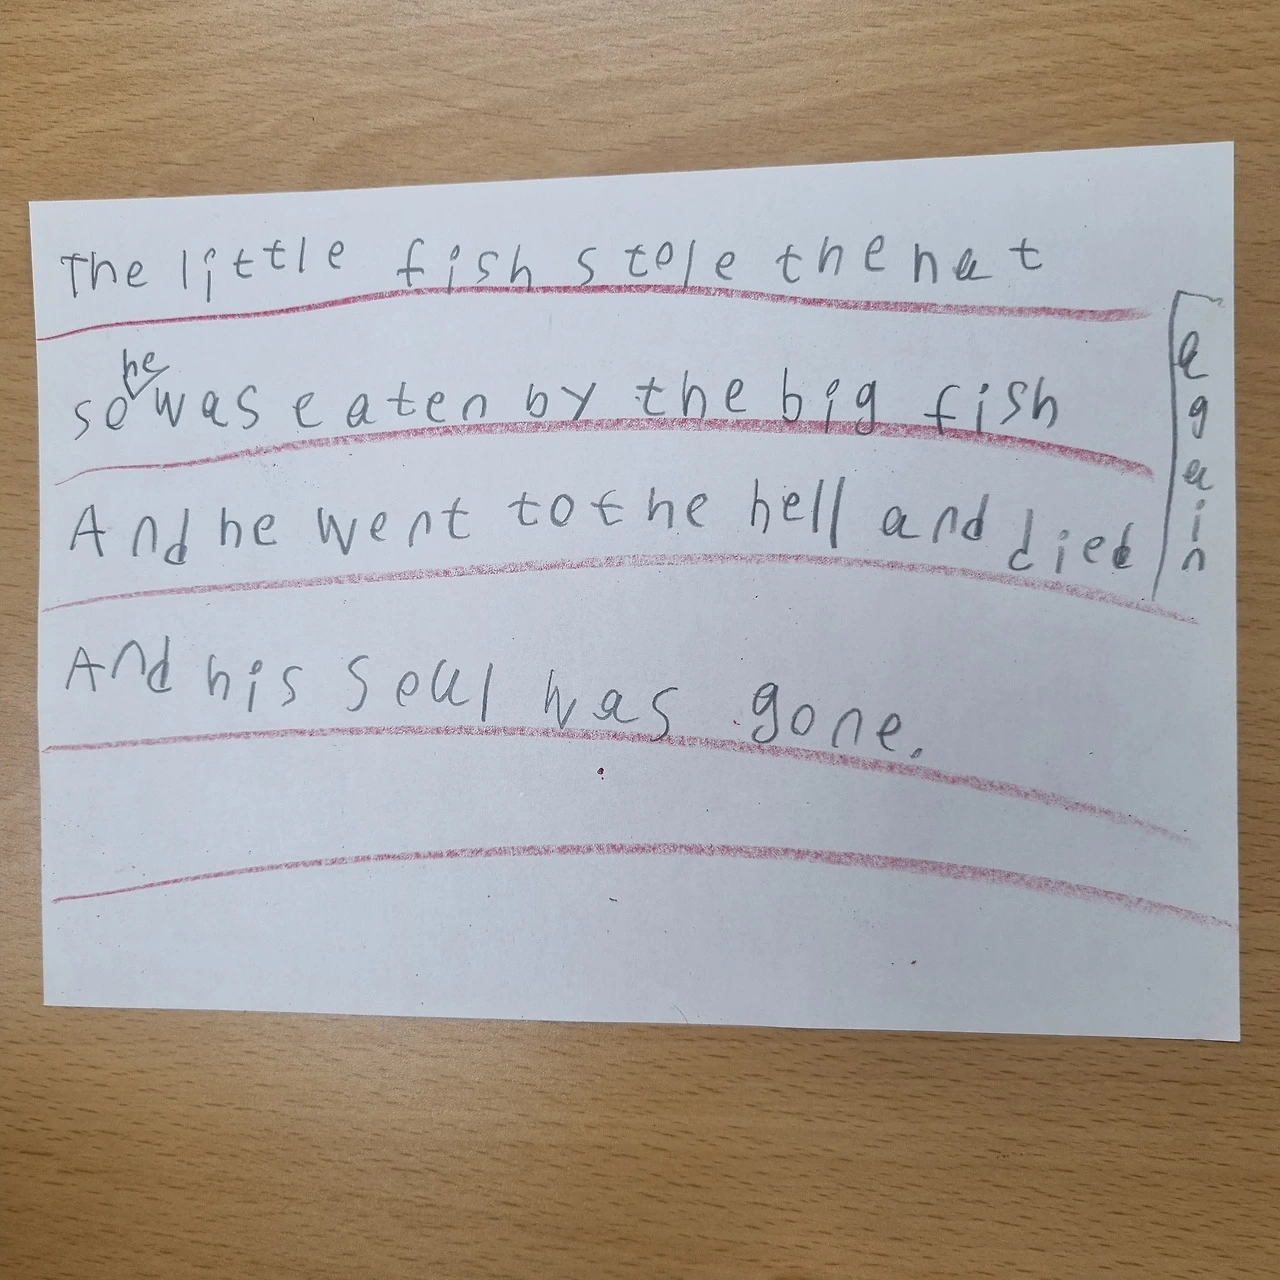 The little fish stole the hat
so he was eaten by the big fish
And he went to the hell and died again
And his soul was gone.